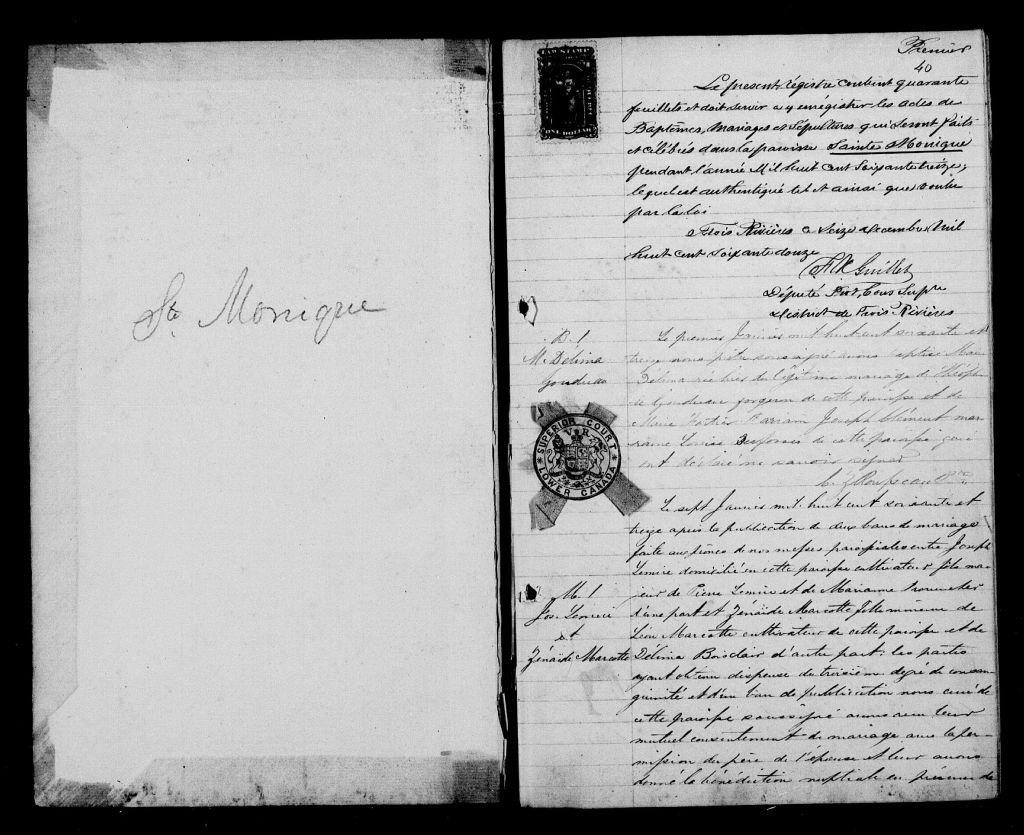 Ste Monique
LAW STAMP
ONE DOLLAR
Premier
40
Le present régistre contient quarante
feuillets et doit servir a y enrégistrer les actes de
Baptêmes, Mariages et Sépultures qui seront faits
et célébrés dans la paroisse Sainte Monique
pendant l'année Mil huit cent Soixante treize,
lequel est authentiqué tel et ainsi que voulu
par la loi
Trois Rivières ce Seize Decembre Mil
huit cent soixante douze
Guillet
Député Prot, Cour Supre
District de Trois Rivières
B. 1
M. Délima
Le premier Janvier mil huit cent soixante et
treize nous prêtre soussigné avons baptisé Marie
Délima née hier du légitime mariage de
forgeron de cette paroisse et de
Marie Parrain Joseph Clément mar-
raine Louise de cette paroisse qui
ont déclaré ne savoir signer
Ptre
SUPERIOR COURT
V R
LOWER CANADA
Le sept Janvier mil huit cent soixante et
treize après la publication de deux bans de mariage
faite aux prônes de nos messes paroissiales entre Joseph
Lemire domicilié en cette paroisse cultivateur fils ma-
M. 1
jeur de Pierre Lemire et de Mariame
Jos. Lemire
d'une part et Zénaïde Marcotte fille mineure de
et
Léon Marcotte cultivateur de cette paroisse et de
Zénaïde Marcotte
Délima Boisclair d'autre part; les parties
ayant obtenu dispense du troisième degré de consan-
guinité et d'un ban de publication nous curé de
cette paroisse soussigné avons reçu leur
mutuel consentement de mariage avec la per-
mission du père de l'épouse et leur avons
donné la bénédiction nuptiale en présence de